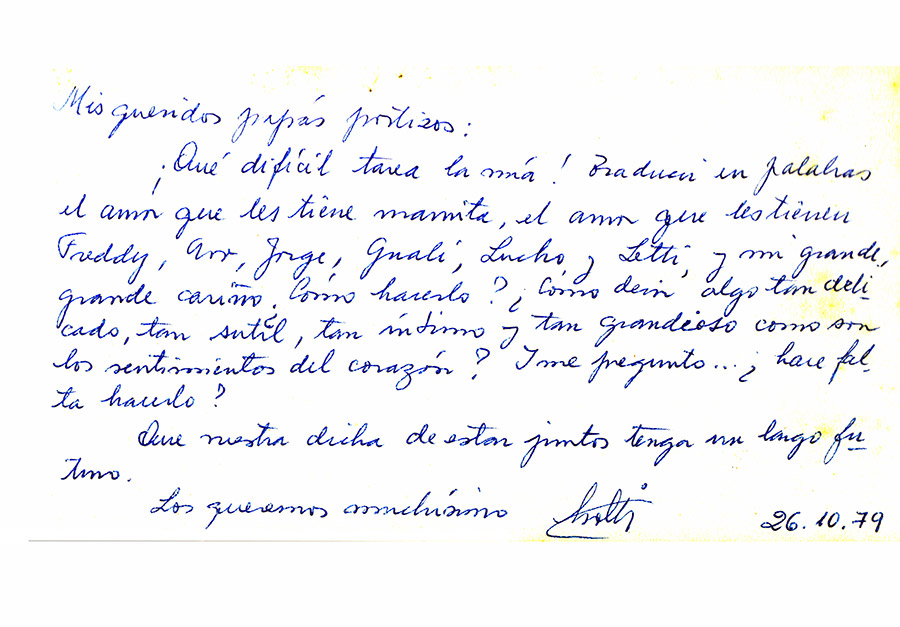 Mis queridos papás postizos:
¡Qué difícil tarea la mía! Traducir en palabras
el amor que les tiene mamita, el amor que les tienen
Freddy, Jorge, Guali, Lucho y Letti, y mi grande,
grande cariño. ¿Cómo hacerlo? ¿Cómo decir algo tan deli-
cado, tan sutil, tan íntimo y tan grandioso como son
los sentimientos del corazón? I me pregunto... ¿hace fal-
ta hacerlo?
Que nuestra dicha de estar juntos tenga un largo fu-
turo.
Los queremos muchísimo
26.10.79